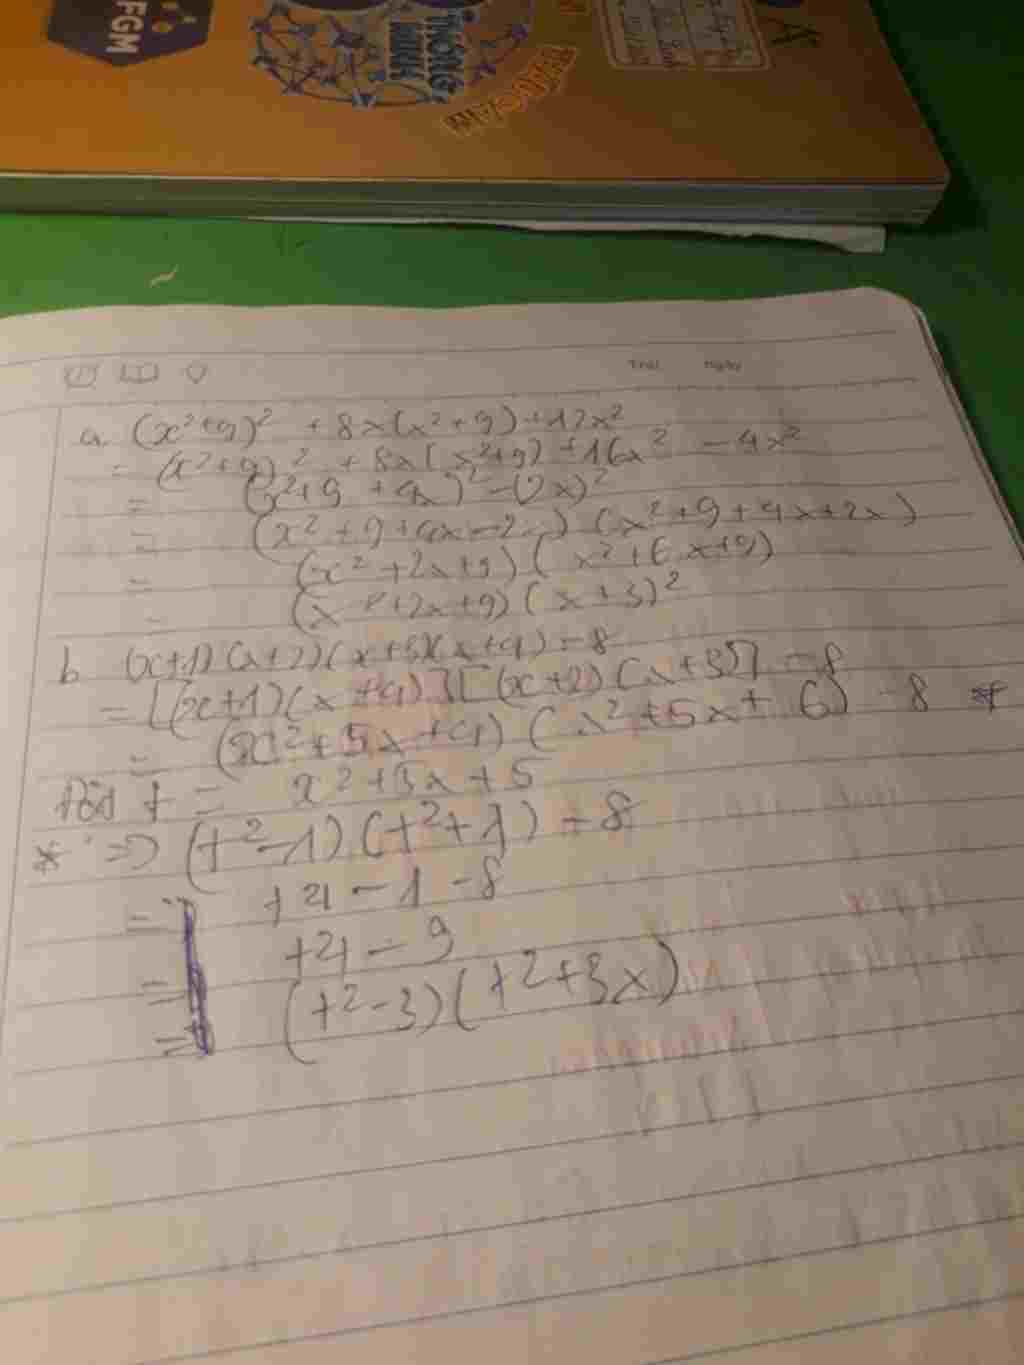 FGM
THÔNG
MINH
Thứ Ngày
a. (x²+9)² + 8x(x²+9)+12x²
= (x²+9)² + 8x(x²+9)+16x² - 4x²
= (x²+9+4x)²-(2x)²
= (x²+9+4x-2x)(x²+9+4x+2x)
= (x²+2x+9)(x²+6x+9)
= (x²+2x+9)(x+3)²
b (x+1)(x+2)(x+3)(x+4)-8
= [(x+1)(x+4)][(x+2)(x+3)]-8
= (x²+5x+4)(x²+5x+6)-8 *
Đặt t = x²+5x+5
* => (t²-1).(t²+1)-8
= t4-1-8
= t4-9
= (t²-3)(t²+3x)